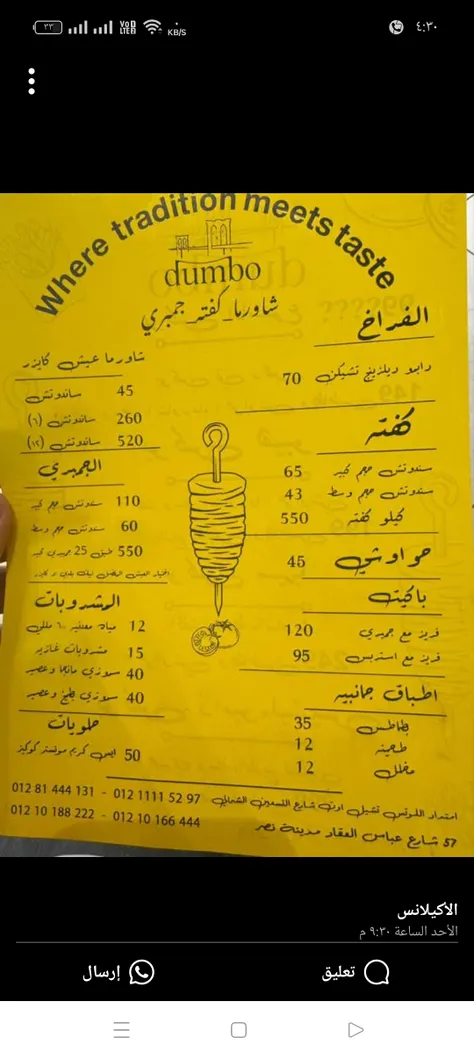 ٣٣
VoD
LTE2
KB/S
٤:٣٠
Where tradition meets taste
dumbo
شاورما_كفته_جمبري
شاورما عيش كايزر
ساندوتش 45
ساندوتش (٦) 260
ساندوتش (١٢) 520
الجمبري
سندوتش حجم كبير 110
سندوتش حجم وسط 60
طبق 25 جمبري كبير 550
المشروبات
مياه معدنيه ٦٠٠ مللي 12
مشروبات غازيه 15
سموزي مانجا وعصير 40
سموزي بطيخ وعصير 40
حلويات
ايس كريم مونستر كوكيز 50
الفراخ
دامبو ديلزينج تشيكن 70
كفته
سندوتش حجم كبير 65
سندوتش حجم وسط 43
كيلو كفته 550
حواوشي 45
باكيت
فريز مع جمبري 120
فريز مع استربس 95
اطباق جانبيه
بطاطس 35
طحينه 12
مخلل 12
امتداد اللوتس تشيل اوت شارع التسعين الشمالي 012 1111 52 97 - 012 81 444 131
57 شارع عباس العقاد مدينة نصر 012 10 166 444 - 012 10 188 222
الأكيلانس
الأحد الساعة ٩:٣٠ م
تعليق
إرسال